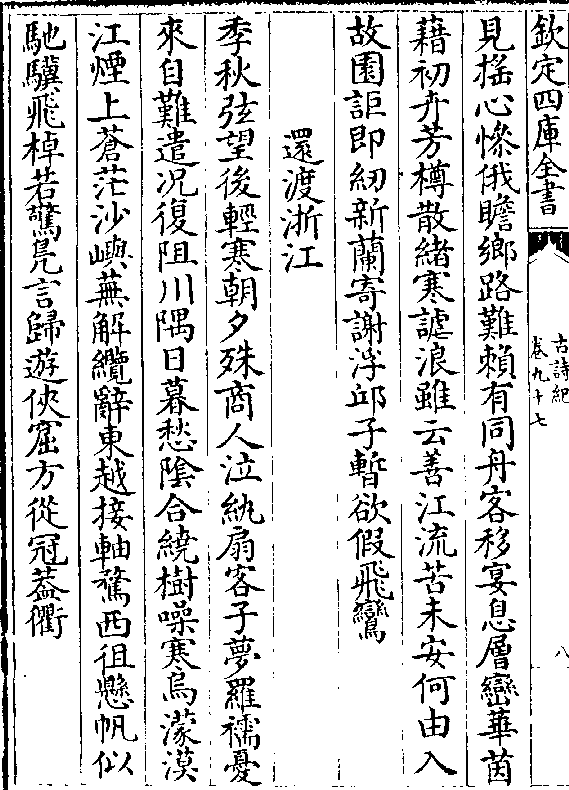 欽定四庫全書
古詩紀
卷九十七
八
見搖心慘俄瞻鄉路難賴有同舟客移宴息層巒華茵
藉初卉芳樽散緒寒謔浪雖云善江流苦未安何由入
故園詎即紉新蘭寄謝浮邱子暫欲假飛鸞
還渡浙江
季秋弦望後輕寒朝夕殊商人泣紈扇客子夢羅襦憂
來自難遣况復阻川隅日暮愁陰合繞樹噪寒烏濛漠
江煙上蒼茫沙嶼蕪解纜辭東越接軸騖西徂懸帆似
馳驥飛棹若驚鳬言歸遊俠窟方從冠葢衢